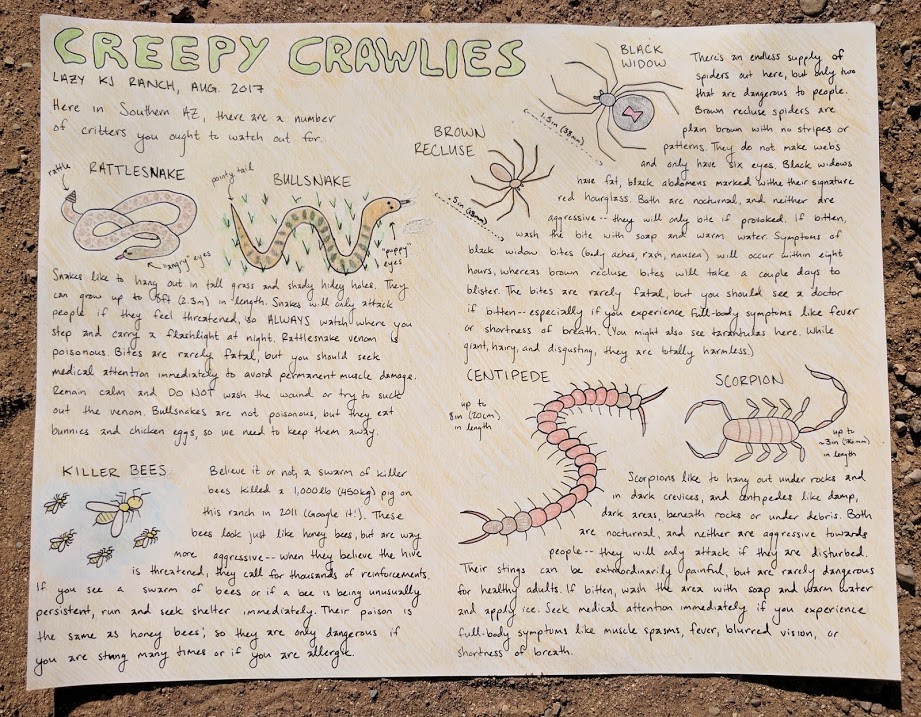 CREEPY CRAWLIES
LAZY KJ RANCH, AUG. 2017
Here in Southern AZ, there are a number
of critters you ought to watch out for.
RATTLESNAKE
rattle
"angry" eyes
BULLSNAKE
pointy tail
"puppy"
eyes
Snakes like to hang out in tall grass and shady hidey holes. They
can grow up to 8ft (2.3m) in length. Snakes will only attack
people if they feel threatened, so ALWAYS watch where you
step and carry a flashlight at night. Rattlesnake venom is
poisonous. Bites are rarely fatal, but you should seek
medical attention immediately to avoid permanent muscle damage.
Remain calm and DO NOT wash the wound or try to suck
out the venom. Bullsnakes are not poisonous, but they eat
bunnies and chicken eggs, so we need to keep them away.
KILLER BEES
Believe it or not, a swarm of killer
bees killed a 1,000lb (450kg) pig on
this ranch in 2011 (Google it!). These
bees look just like honey bees, but are way
more aggressive-- when they believe the hive
is threatened, they call for thousands of reinforcements.
If you see a swarm of bees or if a bee is being unusually
persistent, run and seek shelter immediately. Their poison is
the same as honey bees', so they are only dangerous if
you are stung many times or if you are allergic.
BLACK
WIDOW
1.5in (38mm)
BROWN
RECLUSE
.5in (13mm)
There's an endless supply of
spiders out here, but only two
that are dangerous to people.
Brown recluse spiders are
plain brown with no stripes or
patterns. They do not make webs
and only have six eyes. Black widows
have fat, black abdomens marked withe their signature
red hourglass. Both are nocturnal, and neither are
aggressive-- they will only bite if provoked. If bitten,
wash the bite with soap and warm water. Symptoms of
black widow bites (body aches, rash, nausea) will occur within eight
hours, whereas brown recluse bites will take a couple days to
blister. The bites are rarely fatal, but you should see a doctor
if bitten-- especially if you experience full-body symptoms like fever
or shortness of breath. (You might also see tarantulas here. While
giant, hairy, and disgusting, they are totally harmless.)
CENTIPEDE
up to
8in (20cm)
in length
SCORPION
up to
~3in (76mm)
in length
Scorpions like to hang out under rocks and
in dark crevices, and centipedes like damp,
dark areas, beneath rocks or under debris. Both
are nocturnal, and neither are aggressive towards
people-- they will only attack if they are disturbed.
Their stings can be extraordinarily painful, but are rarely dangerous
for healthy adults. If bitten, wash the area with soap and warm water
and apply ice. Seek medical attention immediately if you experience
full-body symptoms like muscle spasms, fever, blurred vision, or
shortness of breath.